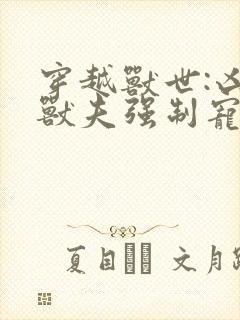 穿越獸世:凶
獸夫强制寵
夏目 文月